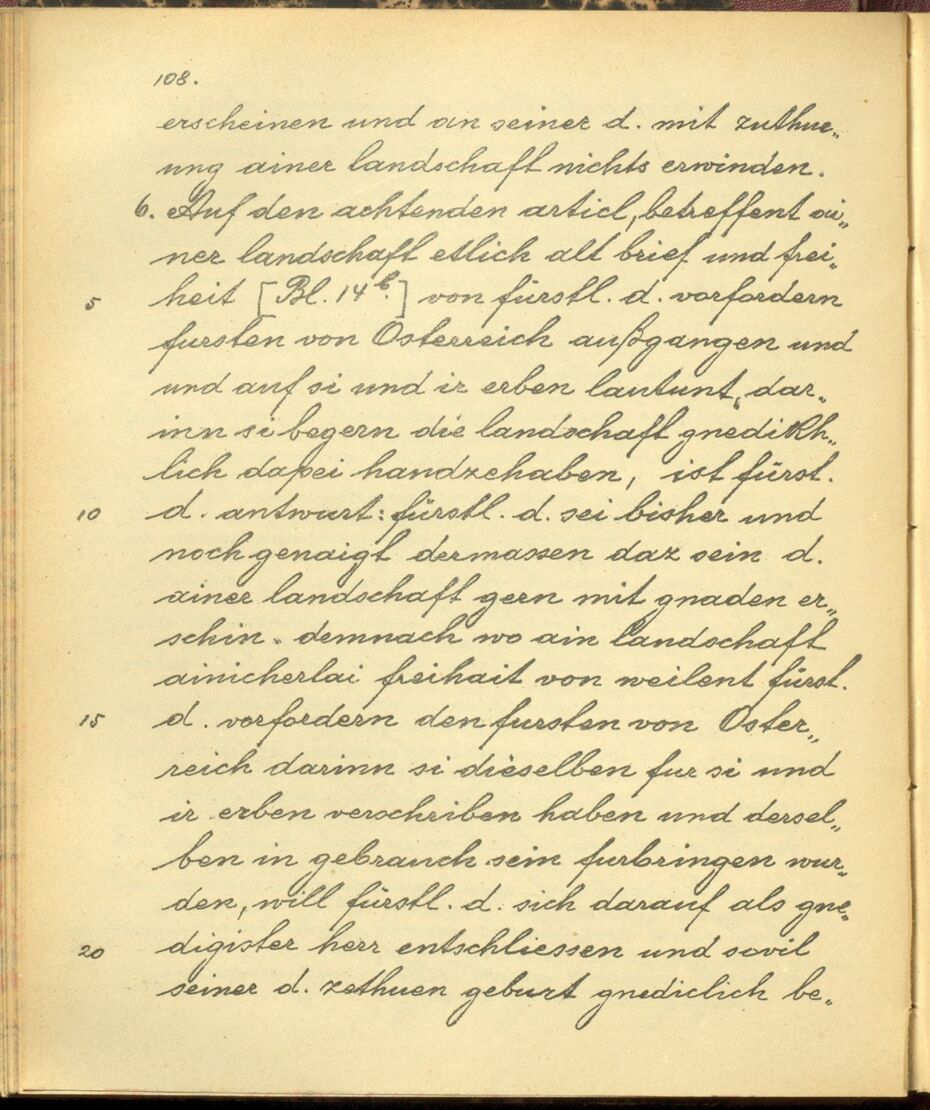 108.
erscheinen und an seiner d. mit zuthue„
ung ainer landschaft nichts erwinden.
6. Auf den achtenden articl, betreffent ai„
ner landschaft etlich alt brief und frei„
5 heit [Bl. 14 b.] von fürstl. d. vorfordern
fursten von Österreich außgangen und
und auf si und ir erben lautunt, dar„
inn si begern die landschaft gnedikh„
lich dapei handzehaben, ist fürst.
10 d. antwurt: fürstl. d. sei bisher und
noch genaigt dermassen daz sein d.
ainer landschaft gern mit gnaden er„
schin. demnach wo ain landschaft
ainicherlai freihait von weilent fürst.
15 d. vorfordern den fursten von Öster„
reich darinn si dieselben fur si und
ir erben verschriben haben und dersel„
ben in gebrauch sein furbringen wur„
den, will fürstl. d. sich darauf als gne„
20 digister herr entschliessen und sovil
seiner d. zethuen geburt gnediclich be„